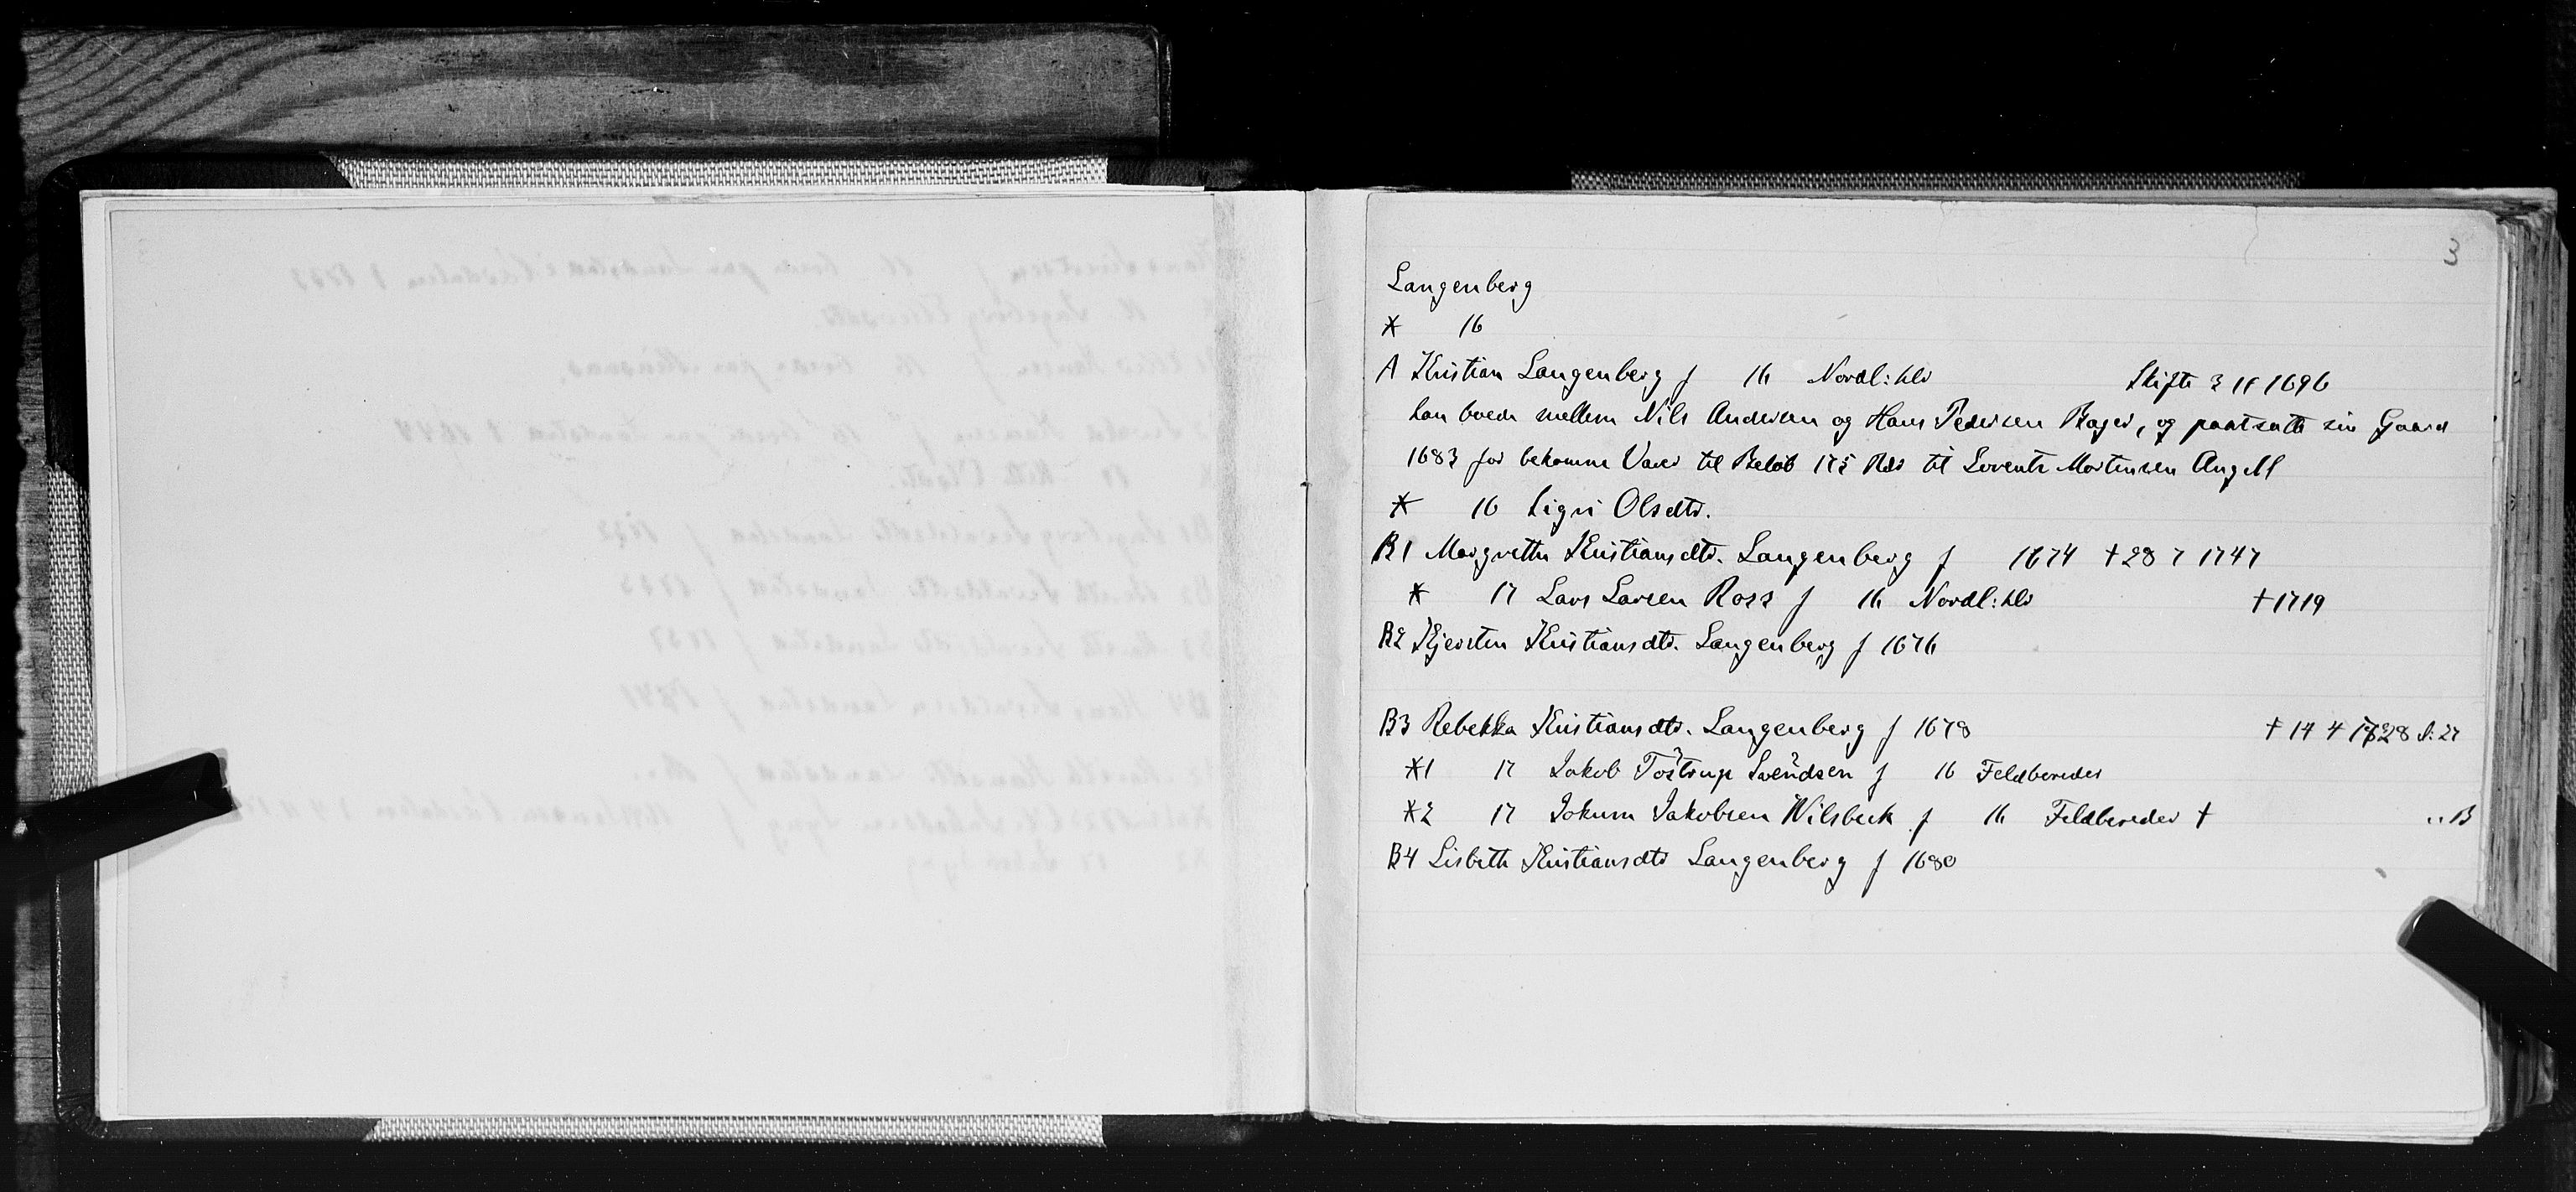 3
Langenberg
* 16
A Kristian Langenberg f 16 Nordl:hlr Skifte 3 11 1696
han boede mellem Nils Andersen og Hans Pedersen Bager, og pantsatte sin Gaard
1683 for bekomne Varer til Beløb 175 Rdr til Lorents Mortensen Angell
* 16 Sigri Olsdtr.
B1 Margrethe Kristiansdtr. Langenberg f 1674 † 28 7 1747
* 17 Lars Larsen Ross f 16 Nordl:hlr † 1719
B2 Kjersten Kristiansdtr. Langenberg f 1676
B3 Rebekka Kristiansdtr. Langenberg f 1678 † 14 4 1728
*1 17 Jakob Tostrup Svendsen f 16 Feldbereder
*2 17 Jokum Jakobsen Wilsbeck f 16 Feldbereder †
B4 Lisbeth Kristiansdtr Langenberg f 1680